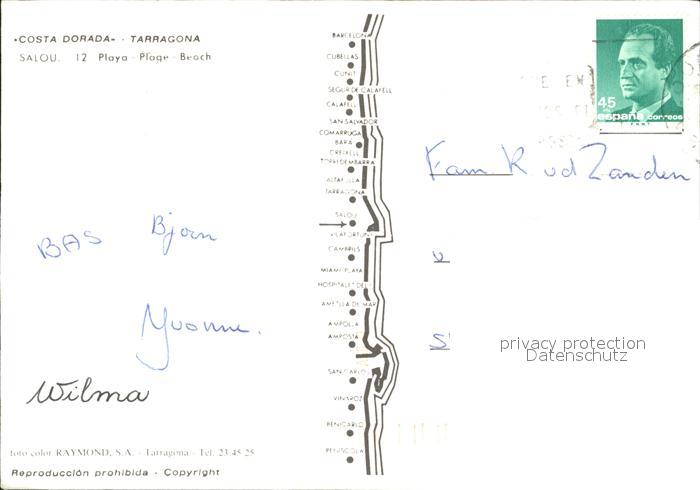 «COSTA DORADA» - TARRAGONA
SALOU. 12 Playa - Plage - Beach
BARCELONA
CUBELLAS
CUNIT
SEGUR DE CALAFELL
CALAFELL
SAN SALVADOR
COMARRUGA
BARA
CREIXELL
TORREDEMBARRA
ALTAFULLA
TARRAGONA
SALOU
VILAFORTUNY
CAMBRILS
MIAMI PLAYA
HOSPITALET DEL
AMETLLA DE MAR
AMPOLLA
AMPOSTA
SAN CARLOS
VINAROZ
BENICARLO
PEÑISCOLA
45
españa correos
F.N.M.T
Fam R vd Zanden
v
S
privacy protection
Datenschutz
BAS Bjorn
Yvonne.
Wilma
foto color RAYMOND, S.A. - Tarragona - Tel. 23 45 25
Reproducción prohibida - Copyright